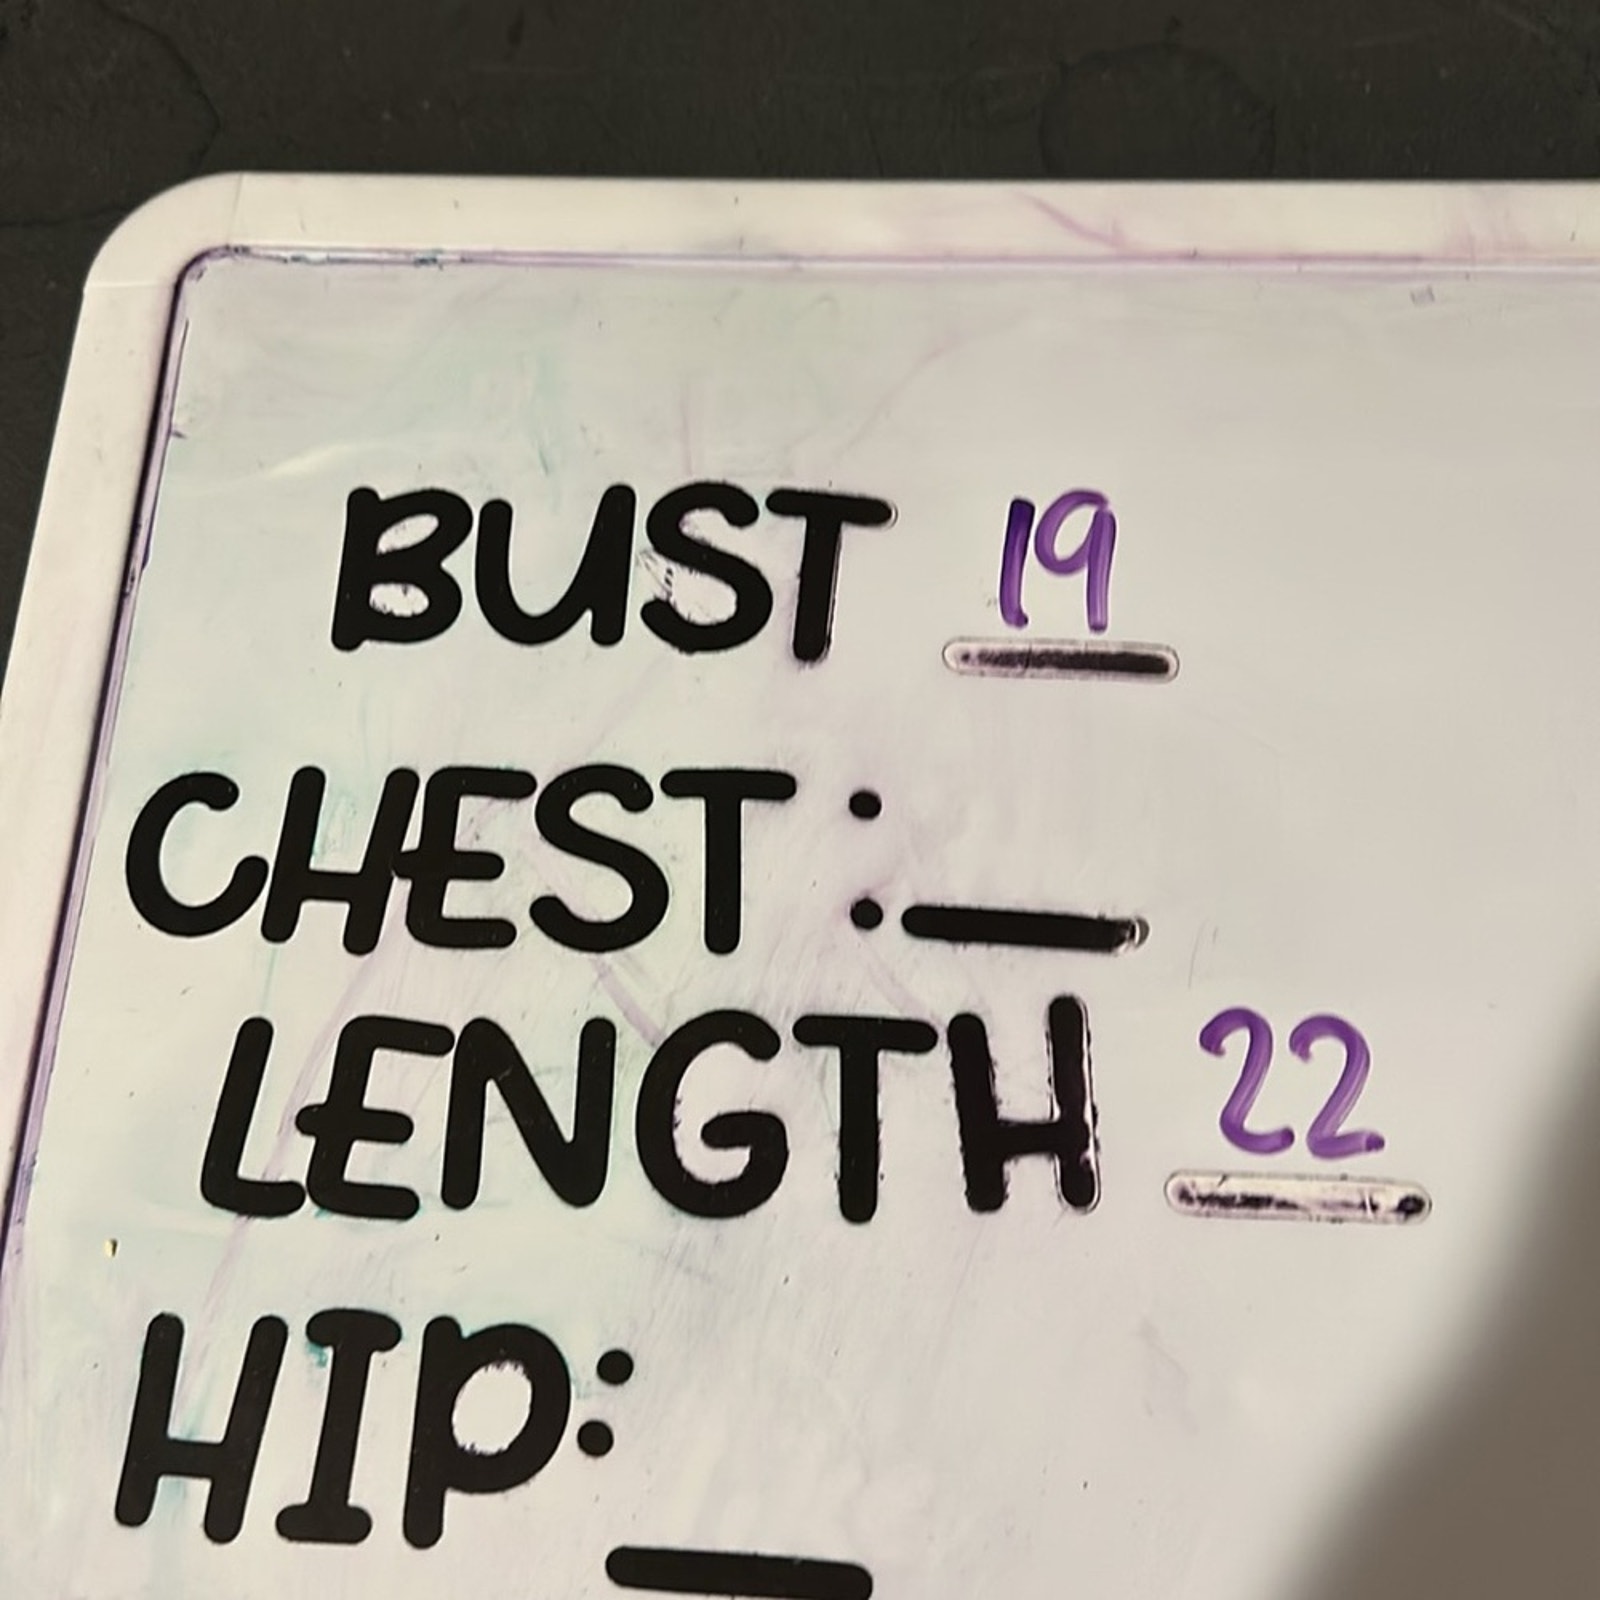 BUST 19
CHEST :
LENGTH 22
HIP: